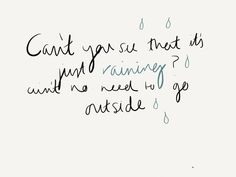 Can't you see that it's
just raining?
ain't no need to go
outside